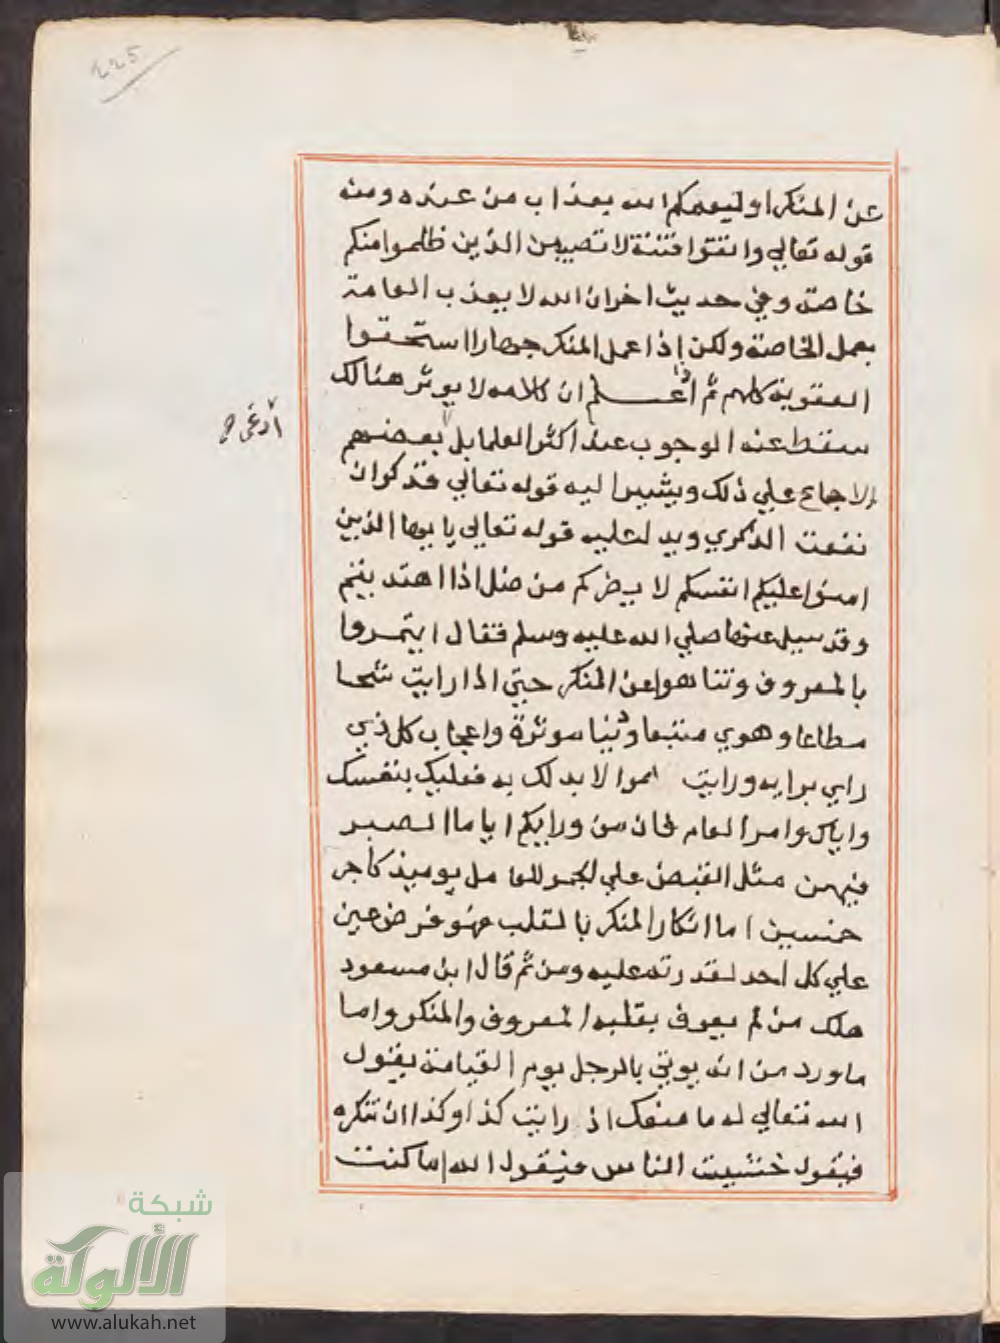 225
عن المنكر اوليعمكم الله بعذاب من عنده ومنه
قوله تعالي واتقوا فتنة لا تصيبن الذين ظلموا منكم
خاصة وفي حديث اخر ان الله لا يعذب العامة
بعمل الخاصة ولكن إذا عمل المنكر جهارا استحقوا
العقوبة كلهم ثم اذا علم ان كلامه لا يوثر هنالك
سقط عنه الوجوب عند اكثر العلما بل بعضهم
أدعى صح
الاجماع علي ذلك ويشير اليه قوله تعالي فذكر ان
نفعت الذكري ويدل عليه قوله تعالي يا يها الذين
امنوا عليكم انفسكم لا يضركم من ضل اذا اهتديتم
وقد سيل عنها صلي الله عليه وسلم فقال ايتمروا
بالمعروف وتناهوا عن المنكر حتي اذا رايت شحا
مطاعا وهوي متبعا ودنيا موثرة واعجاب كل ذي
راي برايه ورايت امرا لا بد لك به فعليك بنفسك
واياك وامر العام فان من ورايكم اياما الصبر
فيهن مثل القبض علي الجمر للعامل يوميذ كاجر
خمسين اما انكار المنكر بالقلب فهو فرض عين
علي كل احد لقدرته عليه ومن ثم قال ابن مسعود
هلك من لم يعرف بقلبه المعروف والمنكر واما
ما ورد من انه يوتي بالرجل يوم القيامة يقول
الله تعالي له ما منعك اذ رايت كذا وكذا ان تنكره
فيقول خشيت الناس فيقول الله اما كنت
شبكة
الألوكة
www.alukah.net